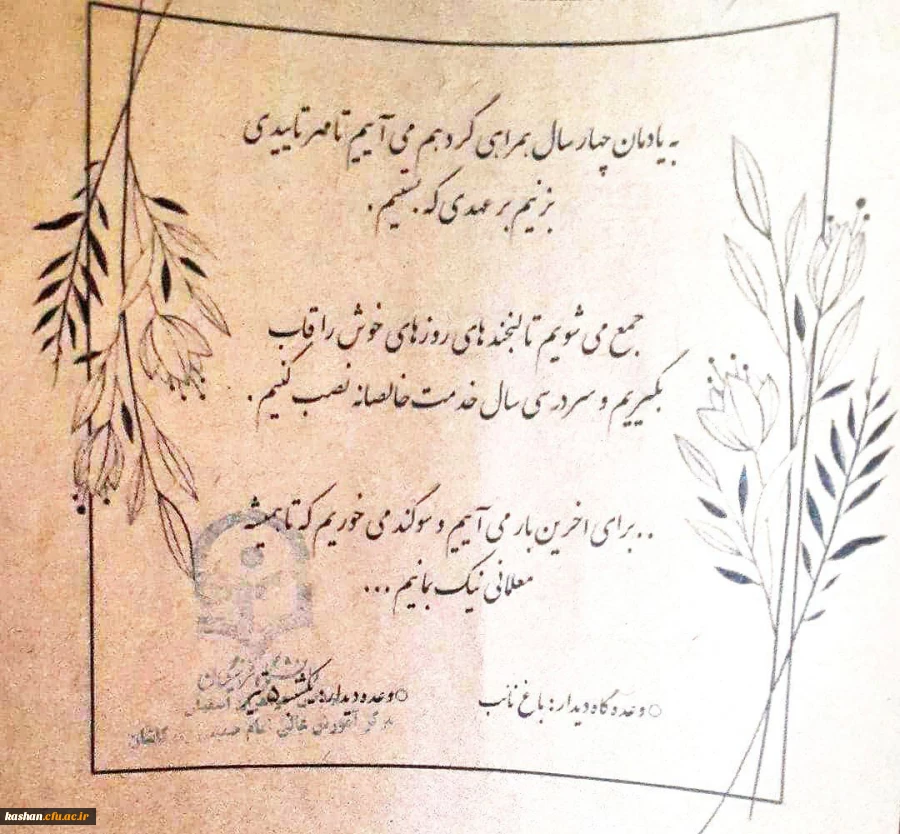 به یادمان چهار سال همراهی گرد هم می آییم تا مهر تاییدی
بزنیم بر عهدی که بستیم.
جمع می شویم تا لبخند های روزهای خوش را قاب
بگیریم و سردر سی سال خدمت خالصانه نصب کنیم.
..برای اخرین بار می آییم و سوگند می خوریم که تا همیشه
معلمانی نیک بمانیم ...
وعده گاه دیدار: باغ نائب
وعده دیدار: یکشنبه ۵ تیر
دانشگاه فرهنگیان
مرکز آموزش عالی امام کاشان
kashan.cfu.ac.ir